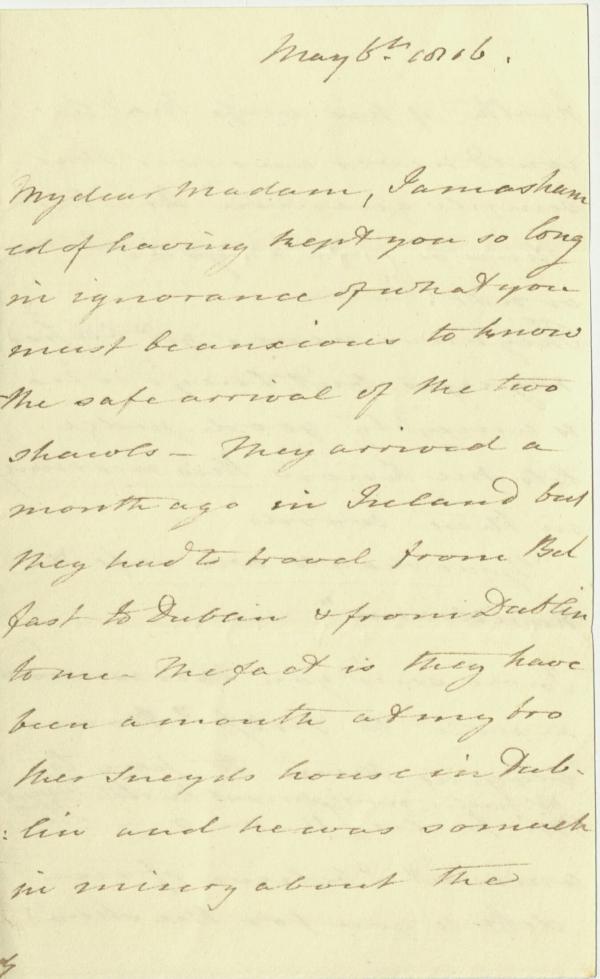 May 6th. 1816.
My dear Madam, I am asham
ed of having kept you so long
in ignorance of what you
must be anxious to know
the safe arrival of the two
shawls – They arrived a
month ago in Ireland but
they had to travel from Bel
fast to Dublin & from Dublin
to me – The fact is they have
been a month at my bro
ther Sneyds house in Dub-
:lin and he was so much
in misery about the